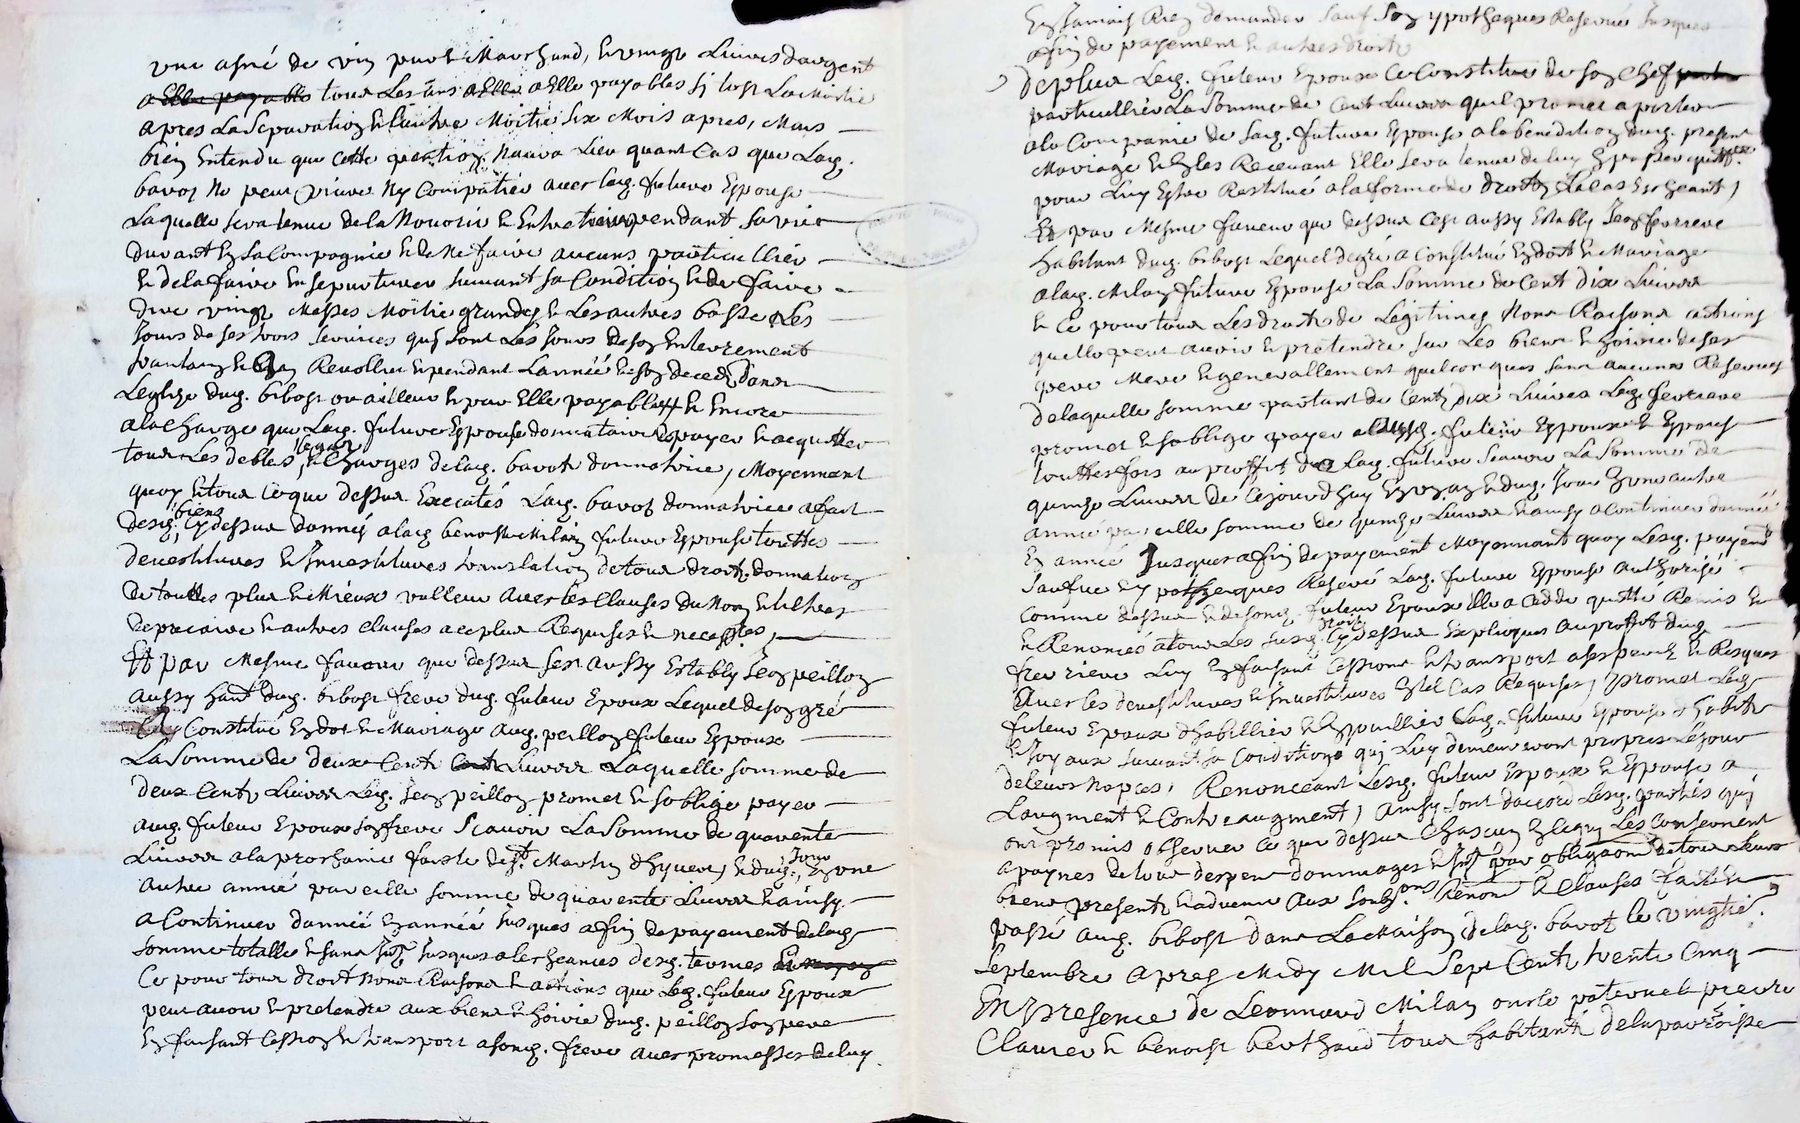 une asné de vin pur & Marchand, & vingt Livres dargent
a Elle payable tous Les ans a Elle a Elle payables sj tost La Moitié
apres La Separation & l'autre Moitié six Mois apres, Mais
bien Entendu que cette pention Naura Lieu quant Cas que Lad.
bavot Ne peut vivre Ny Compatir avec lad. future Epouse
Laquelle sera tenue de la Nourir & Entretenir pendant sa vie
durant En sa Compagnie & de Ne faire aucuns particullier
& de la faire Ensepulturer suivant sa Condition & de faire
dire vingt Messes Moitié grandes & Les autres basses Les
Jours de ses trois services quj sont Les Jours de son Enterrement
trantain & an Revollu & pendant L'année de son deced dans
Leglise dud. bibost ou ailleur & par Elle payable & Encore
a la Charge que Lad. future Epouse donnataire payer & acquitter
tous Les debtes, legats & Charges de lad. bavot donnatrice, Moyennant
quoy & tout ce que dessus Executés Lad. bavot donnatrice a fait
desd. biens Cy dessus donnés a lad. benoite Milan future Epouse touttes
devestitures & Investitures translation de tous droits, donnation
de touttes plus & Mieux valleur avec les Clauses du Nom & tiltres
de precaire & autres clauses a ce plus Requises & necess.res
Et par Mesme faveur que dessus sest aussy Estably Jean peillon
aussy hant dud. bibost frere dud. futeur Epoux Lequel de son gré
a Constitué En dot & Mariage aud. peillon futeur Epoux
La Somme de deux Cents Cents Livres Laquelle somme de
deux Cents Livres Led. Jean peillon promet & soblige payer
aud. futeur Epoux son frere Scavoir La Somme de quarente
Livres a la prochaine feste de St. Martin dhyvert, & dud. Jour En une
autre année pareille somme de quarente Livres & ainsy
a Continuer dannée En année Jusques a fin de payement de lad.
somme totalle & sans Jnt. Jusques a les cheances desd. termes
Ce pour tous droits Noms Raisons & actions que Led. futeur Epoux
peut avoir & pretendre aux biens & hoirie dud. peillon son pere
En faisant Cession & transport a sond. frere avec promesses de luy
En Jamais Rien demander sauf son ypotheques Reservé Jusques
a fin de payement & autres droits
De plus Led. futeur Epoux Ce Constitue de son Chef
particullier La Somme de Cent Livres quil promet aporter
a la Companie de lad. future Epouse a la benediction dud. present
Mariage & En les Recevant Elle sera tenue de luy En passer quitt.ce
pour Luy Estre Restitué a la forme de droits Le Cas Escheant,
Et par Mesme faveur que dessus cest aussy Estably Jean ferriere
habitant dud. bibost Lequel de gré a Constitué En dot & Mariage
a lad. Milan future Epouse La Somme de Cent dix Livres
& Ce pour tous Les droits de Legitimes Noms Raisons actions
quelle peut avoir & pretendre sur Les biens & hoirie de ses
pere Mere & generallement quelconques sans aucunes Reserves
de laquelle somme partant de Cent dix Livres Led. ferriere
promet & soblige payer ausd. futeur Epoux & Epouse
touttesfois au proffit de Lad. future Scavoir La Somme de
quinze Livres de Cejourdhuy En un an & dud. Jour En une autre
année pareille somme de quinze Livres & ainsy a Continuer dannée
En année Jusques a fin de payement Moyennant quoy Lesd. payemt.
Sauf sue ypotheques Reservé Lad. future Epouse authorisé
comme dessus & de sond. futeur Epoux Elle a Ceddé quitté Remis &
& Renoncés a tous Les susd. droits Cy dessus Expliques au proffit dud.
ferriere Luy En faisant Cessions & transport a ses perils & Risques
avec les devestitures & Investitures En tel Cas Requises, promet Led.
futeur Epoux dhabillier & Enjouellier Lad. future Epouse dhabits
& Joyaux suivant sa Conditions quj Luy demeureront propres Le Jour
de leurs nopces, Renonceant Lesd. futeur Epoux & Epouse a
Laugment & Contreaugment, ainsy sont daccord Lesd. parties quj
ont promis observer ce que dessus Chascun En ce quj Les Concernent
a paynes de tous despens dommages & Jnt. par obligaon de tous leurs
biens presents & advenir aux soub.ons Renon & Clauses fait &
passé aud. bibost dans La Maison de lad. bavot le vingtie.
Septembre apres Midy Mil Sept Cents trente Cinq
En presence de Leonnard Milan oncle paternel pierre
Clamer & benoist berthaud tous habitants de la parroisse